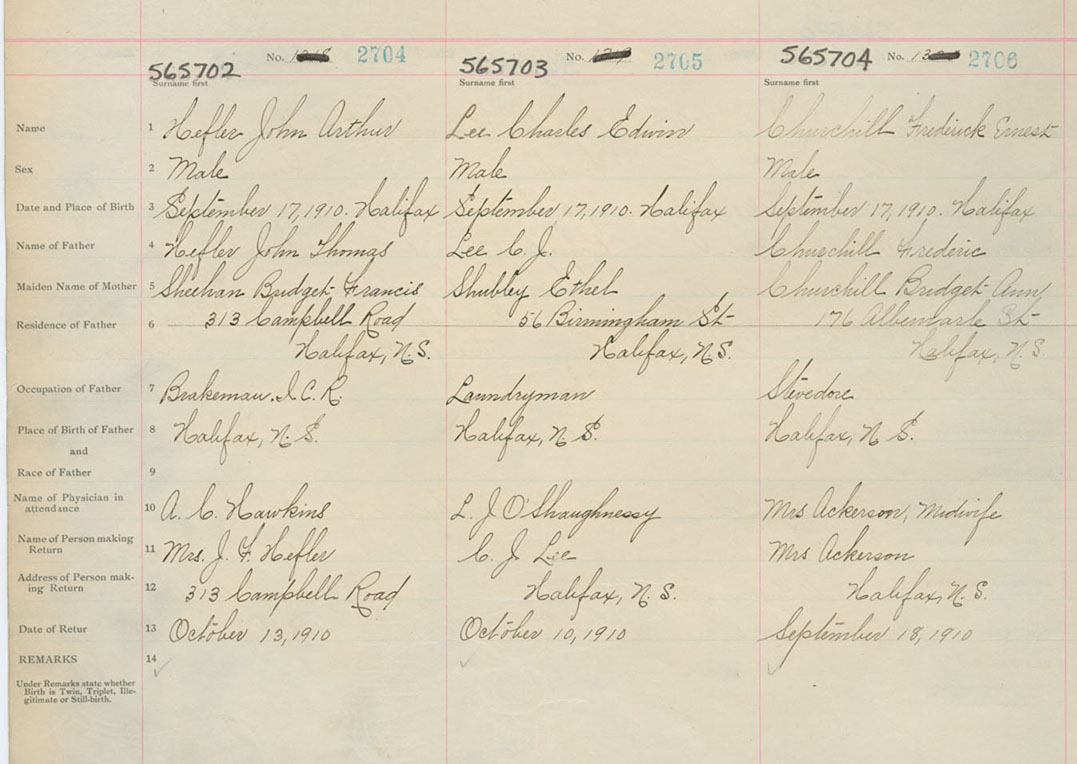 No. 2704 No. 2705 No. 2706
565702 565703 565704
Surname first Surname first Surname first
Name 1 Hefler John Arthur Lee Charles Edwin Churchill Frederick Ernest
Sex 2 Male Male Male
Date and Place of Birth 3 September 17, 1910. Halifax September 17, 1910. Halifax September 17, 1910. Halifax
Name of Father 4 Hefler John Thomas Lee C. J. Churchill Frederic
Maiden Name of Mother 5 Sheehan Bridget Francis Shubley Ethel Churchill Bridget Ann
Residence of Father 6 313 Campbell Road 56 Birmingham St 176 Albemarle St
Halifax, N.S. Halifax, N.S. Halifax, N.S.
Occupation of Father 7 Brakeman. I.C.R. Laundryman Stevedore
Place of Birth of Father 8 Halifax, N.S. Halifax, N S. Halifax, N S.
and
Race of Father 9
Name of Physician in
attendance 10 A. C. Hawkins L. J O'Shaughnessy Mrs Ackerson, Midwife
Name of Person making
Return 11 Mrs. J. F. Hefler C. J. Lee Mrs Ackerson
Address of Person mak-
ing Return 12 313 Campbell Road Halifax, N.S. Halifax, N.S.
Date of Retur 13 October 13, 1910 October 10, 1910 September 18, 1910
REMARKS 14
Under Remarks state whether
Birth is Twin, Triplet, Ille-
gitimate or Still-birth.